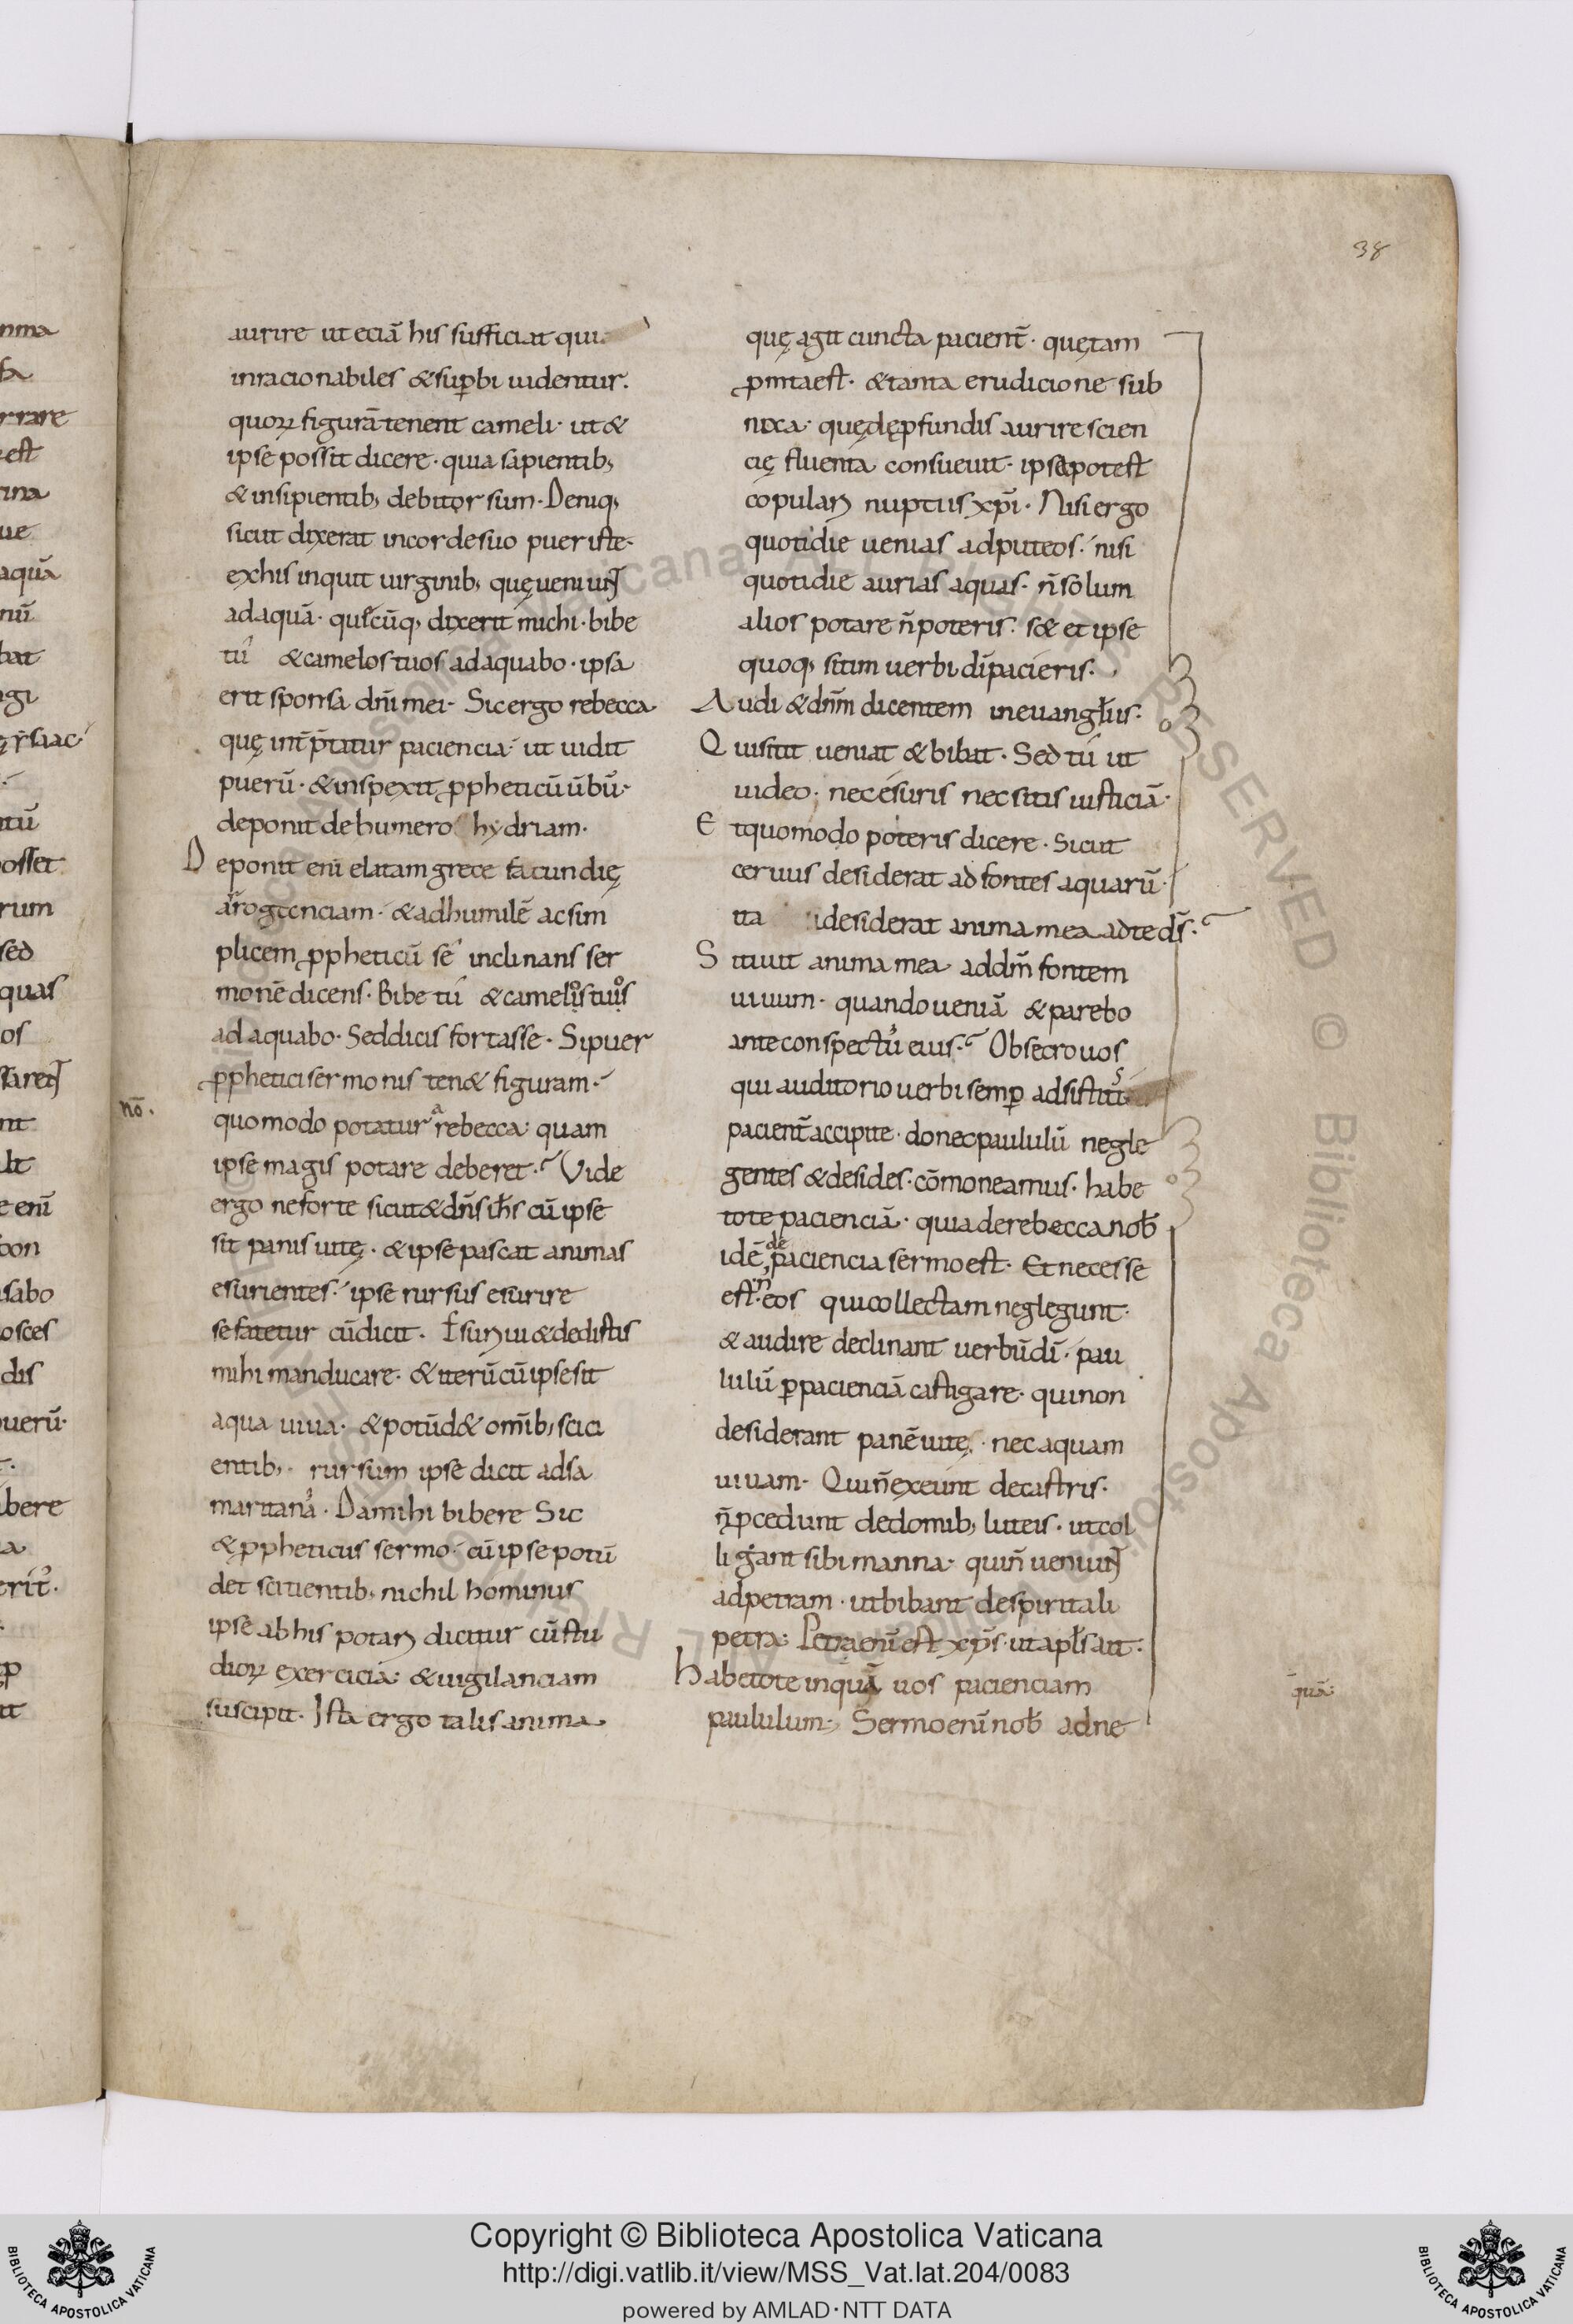 38
aurire ut eciā his sufficiat qui
inracionabiles & sup̱bi uidentur.
quoꝝ figurā tenent cameli· ut &
ipse possit dicere· quia sapientib;
& insipientib; debitor sum· Deniq;
sicut dixerat in corde suo puer iste·
ex his inquit uirginib; quę ueniunt̄
ad aquā· quęcūq; dixerit michi· bibe
tú & camelos tuos adaquabo· ipsa
erit sponsa dn̄i mei· Sic ergo rebecca
quę int̄p̄tatur paciencia· ut uidit
puerū· & inspexit ꝓpheticū ūbū·
deponit de humero hydriam·
Deponit enī elatam grece facundię
arrogenciam· & ad humilē ac sim
plicem ꝓpheticū se inclinans ser
monē dicens· Bibe tú & camelos tuos
adaquabo· Sed dicis fortasse· Si puer
ꝓphetici sermonis ten& figuram·
nō·
quomodo potatur a rebecca· quam
ipse magis potare deberet· Vide
ergo ne forte sicut & dn̄s ih̄s cū ipse
sit panis uitę· & ipse pascat animas
esurientes· ipse rursus esurire
se fatetur cū dicit· Esuriui & dedistis
mihi manducare· & iterū cū ipse sit
aqua uiua· & potū d& om̄ib; scici
entib;· rursum ipse dicit ad sa
maritanā· Da mihi bibere Sic
& ꝓpheticus sermo· cū ipse potū
det scitientib; nichil hominus
ipse ab his potari dicitur cū stu
dioꝝ exercicia· & uigilanciam
suscipit· Ista ergo talis anima
quę agit cuncta pacient̄· quę tam
ꝓmta est· & tanta erudicione sub
nixa· quę de ꝓfundis aurire scien
cię fluenta consueuit· ipsa potest
copulari nuptiis xp̄i· Nisi ergo
quotidie uenias ad puteos· nisi
quotidie aurias aquas· n̄ solum
alios potare n̄ poteris· s& et ipse
quoq; sitim uerbi dī pacieris·
Audi & dn̄m dicentem in euangłiis·
Qui sitit ueniat & bibat· Sed tú ut
uideo· nec esuris nec sitis iusticiā·
Et quomodo poteris dicere· Sicut
ceruus desiderat ad fontes aquarū·
ita desiderat anima mea ad te ds̄·
Sitiuit anima mea ad dm̄ fontem
uiuum· quando ueniā & parebo
ante conspectū eius· Obsecro uos
qui auditorio uerbi semp̱ adsistitis
pacient̄ accipite· donec paululū negle
gentes & desides· cōmoneamus· habe
tote pacienciā· quia de rebecca nob̄
idē de paciencia sermo est· Et necesse
est· in eos qui collectam neglegunt·
& audire declinant uerbū dī· pau
lulū p̱ pacienciā castigare· qui non
desiderant panē uitę· nec aquam
uiuam· Qui n̄ exeunt de castris·
n̄ ꝓcedunt de domib; luteis· ut col
ligant sibi manna· qui n̄ ueniunt̄
ad petram· ut bibant de spiritali
petra· Petra enī est xp̄s· ut apłs ait·
Habetote inquā uos pacienciam
quā·
paululum· Sermo enī nob̄ ad ne
Copyright © Biblioteca Apostolica Vaticana
http://digi.vatlib.it/view/MSS_Vat.lat.204/0083
powered by AMLAD·NTT DATA